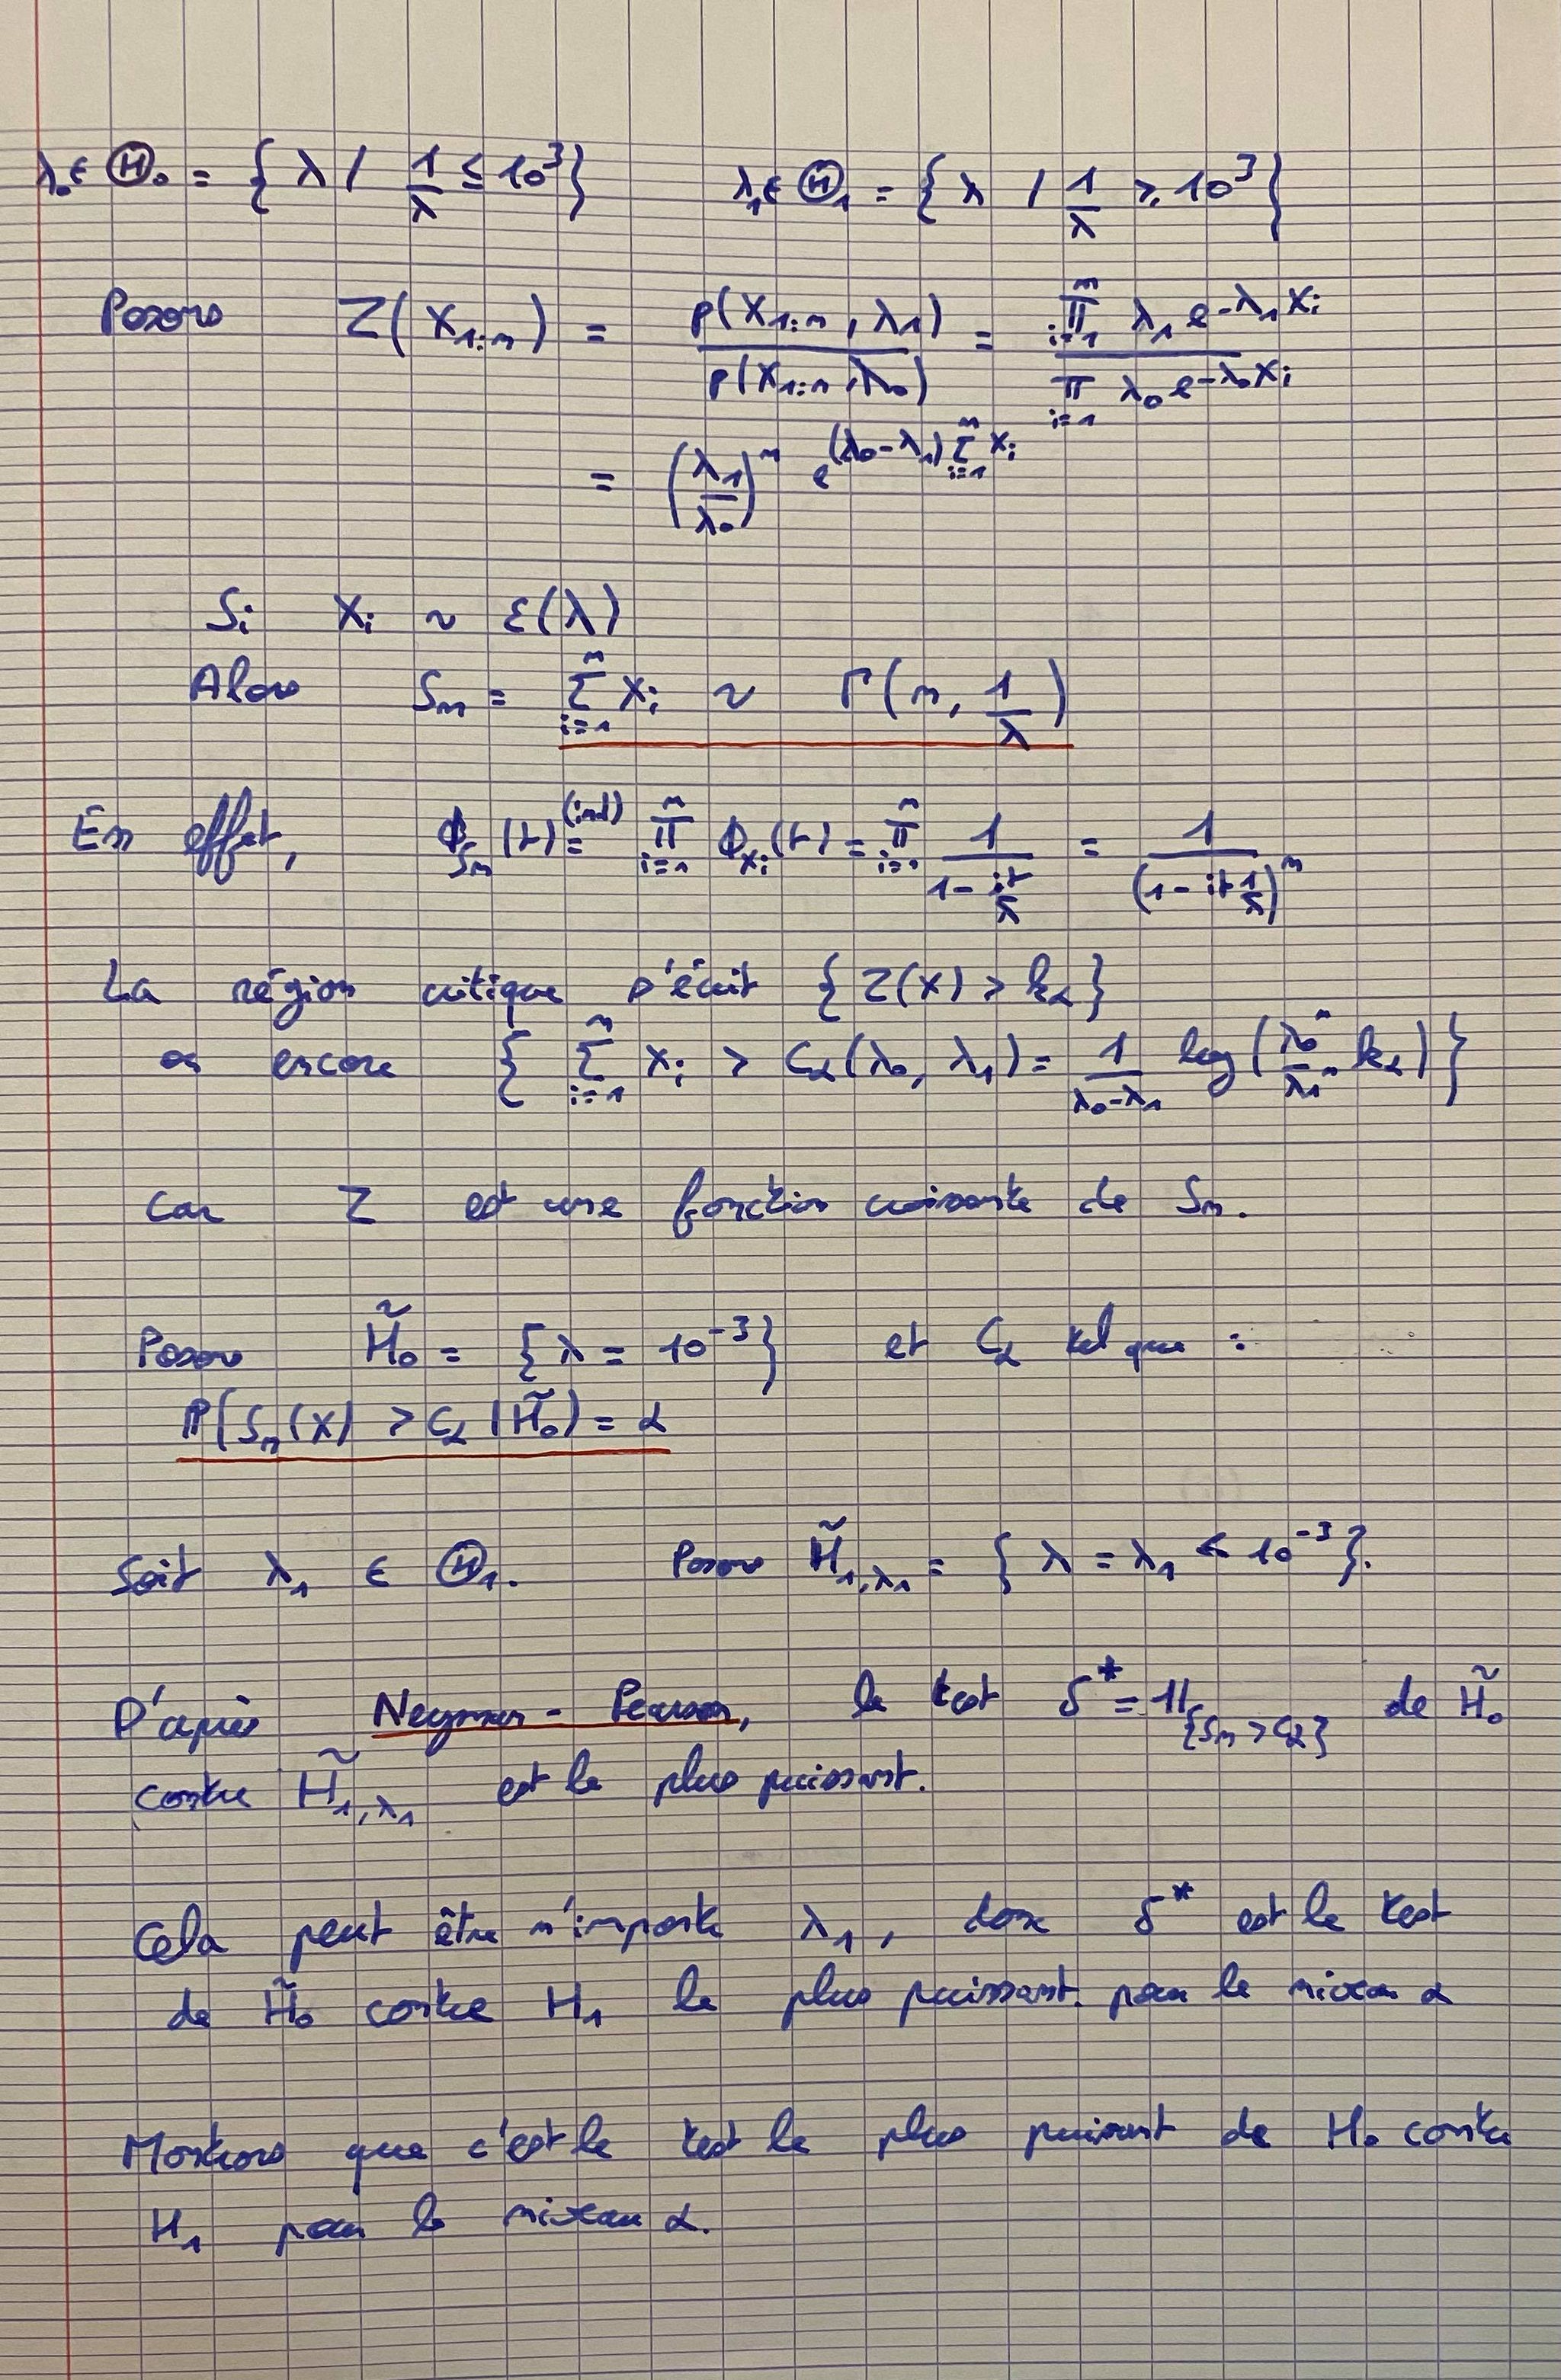 λ₀ ∈ Ⓗ₀ = { λ / 1/λ ≤ 10³ }   λ₁ ∈ Ⓗ₁ = { λ / 1/λ ≥ 10³ }
Posons Z(X₁:ₙ) = p(X₁:ₙ, λ₁) / p(X₁:ₙ, λ₀) = ∏ᵢ₌₁ⁿ λ₁ e^{-λ₁Xᵢ} / ∏ᵢ₌₁ λ₀ e^{-λ₀Xᵢ}
= (λ₁/λ₀)ⁿ e^{(λ₀-λ₁) ∑ᵢ₌₁ⁿ Xᵢ}
Si Xᵢ ~ ε(λ)
Alors Sₙ = ∑ᵢ₌₁ⁿ Xᵢ ~ Γ(n, 1/λ)
En effet, Φ_{Sₙ}(t) =^{(ind)} ∏ᵢ₌₁ⁿ Φ_{Xᵢ}(t) = ∏ᵢ₌₁ⁿ 1/(1 - it/λ) = 1/(1 - it 1/λ)ⁿ
La région critique s'écrit { Z(X) > k_α }
ou encore { ∑ᵢ₌₁ⁿ Xᵢ > C_α(λ₀, λ₁) = 1/(λ₀-λ₁) log( λ₀ⁿ/λ₁ⁿ k_α ) }
car Z est une fonction croissante de Sₙ.
Posons H̃₀ = { λ = 10⁻³ } et C_α tel que :
ℙ(Sₙ(X) > C_α | H̃₀) = α
Soit λ₁ ∈ Ⓗ₁. Posons H̃₁,λ₁ = { λ = λ₁ < 10⁻³ }.
D'après Neyman - Pearson, le test δ* = 1l_{{Sₙ > C_α}} de H̃₀
contre H̃₁,λ₁ est le plus puissant.
Cela peut être n'importe λ₁, donc δ* est le test
de H̃₀ contre H₁ le plus puissant. pour le niveau α
Montrons que c'est le test le plus puissant de H₀ contre
H₁ pour le niveau α.